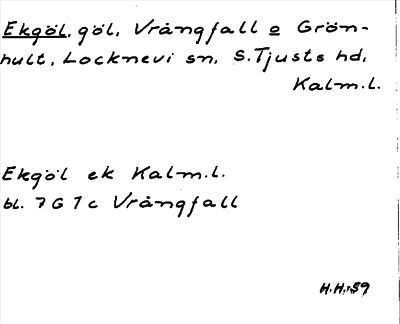 Ekgöl, göl, Vrångfall o Grön-
hult, Locknevi sn, S. Tjusts hd,
Kalm. l.
Ekgöl ek Kalm. l.
bl. 7 G 7 c Vrångfall
H.H. 59